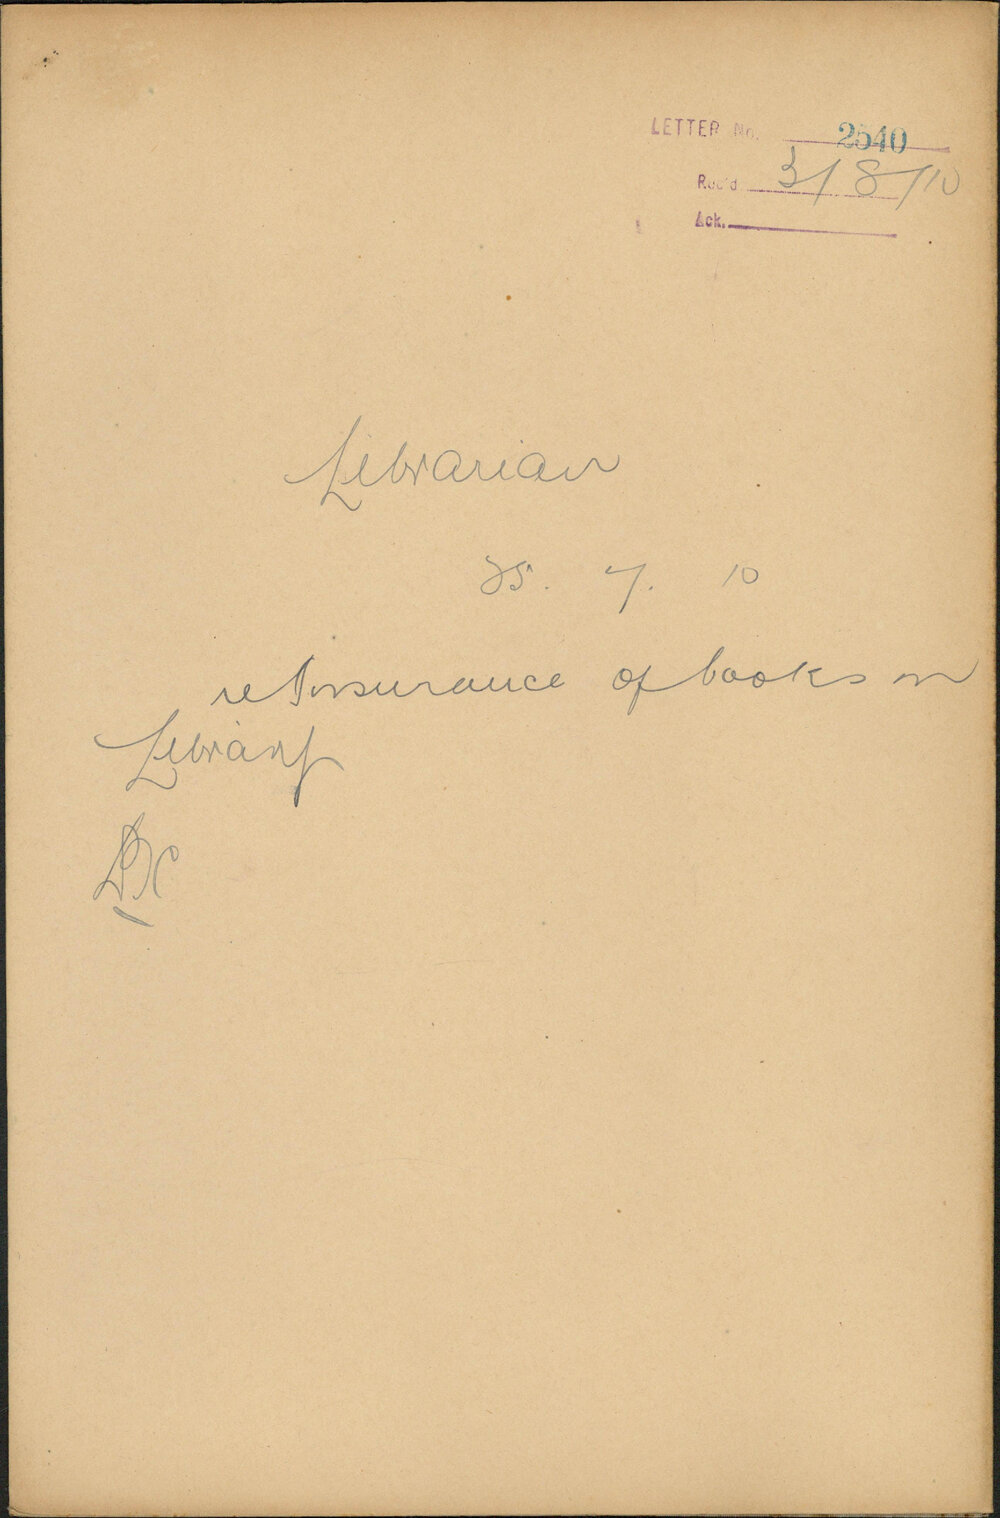 LETTER No. 2540
Rec'd. 3/8/10
Ack.
Librarian
25. 7. 10
re Insurance of books in
Library